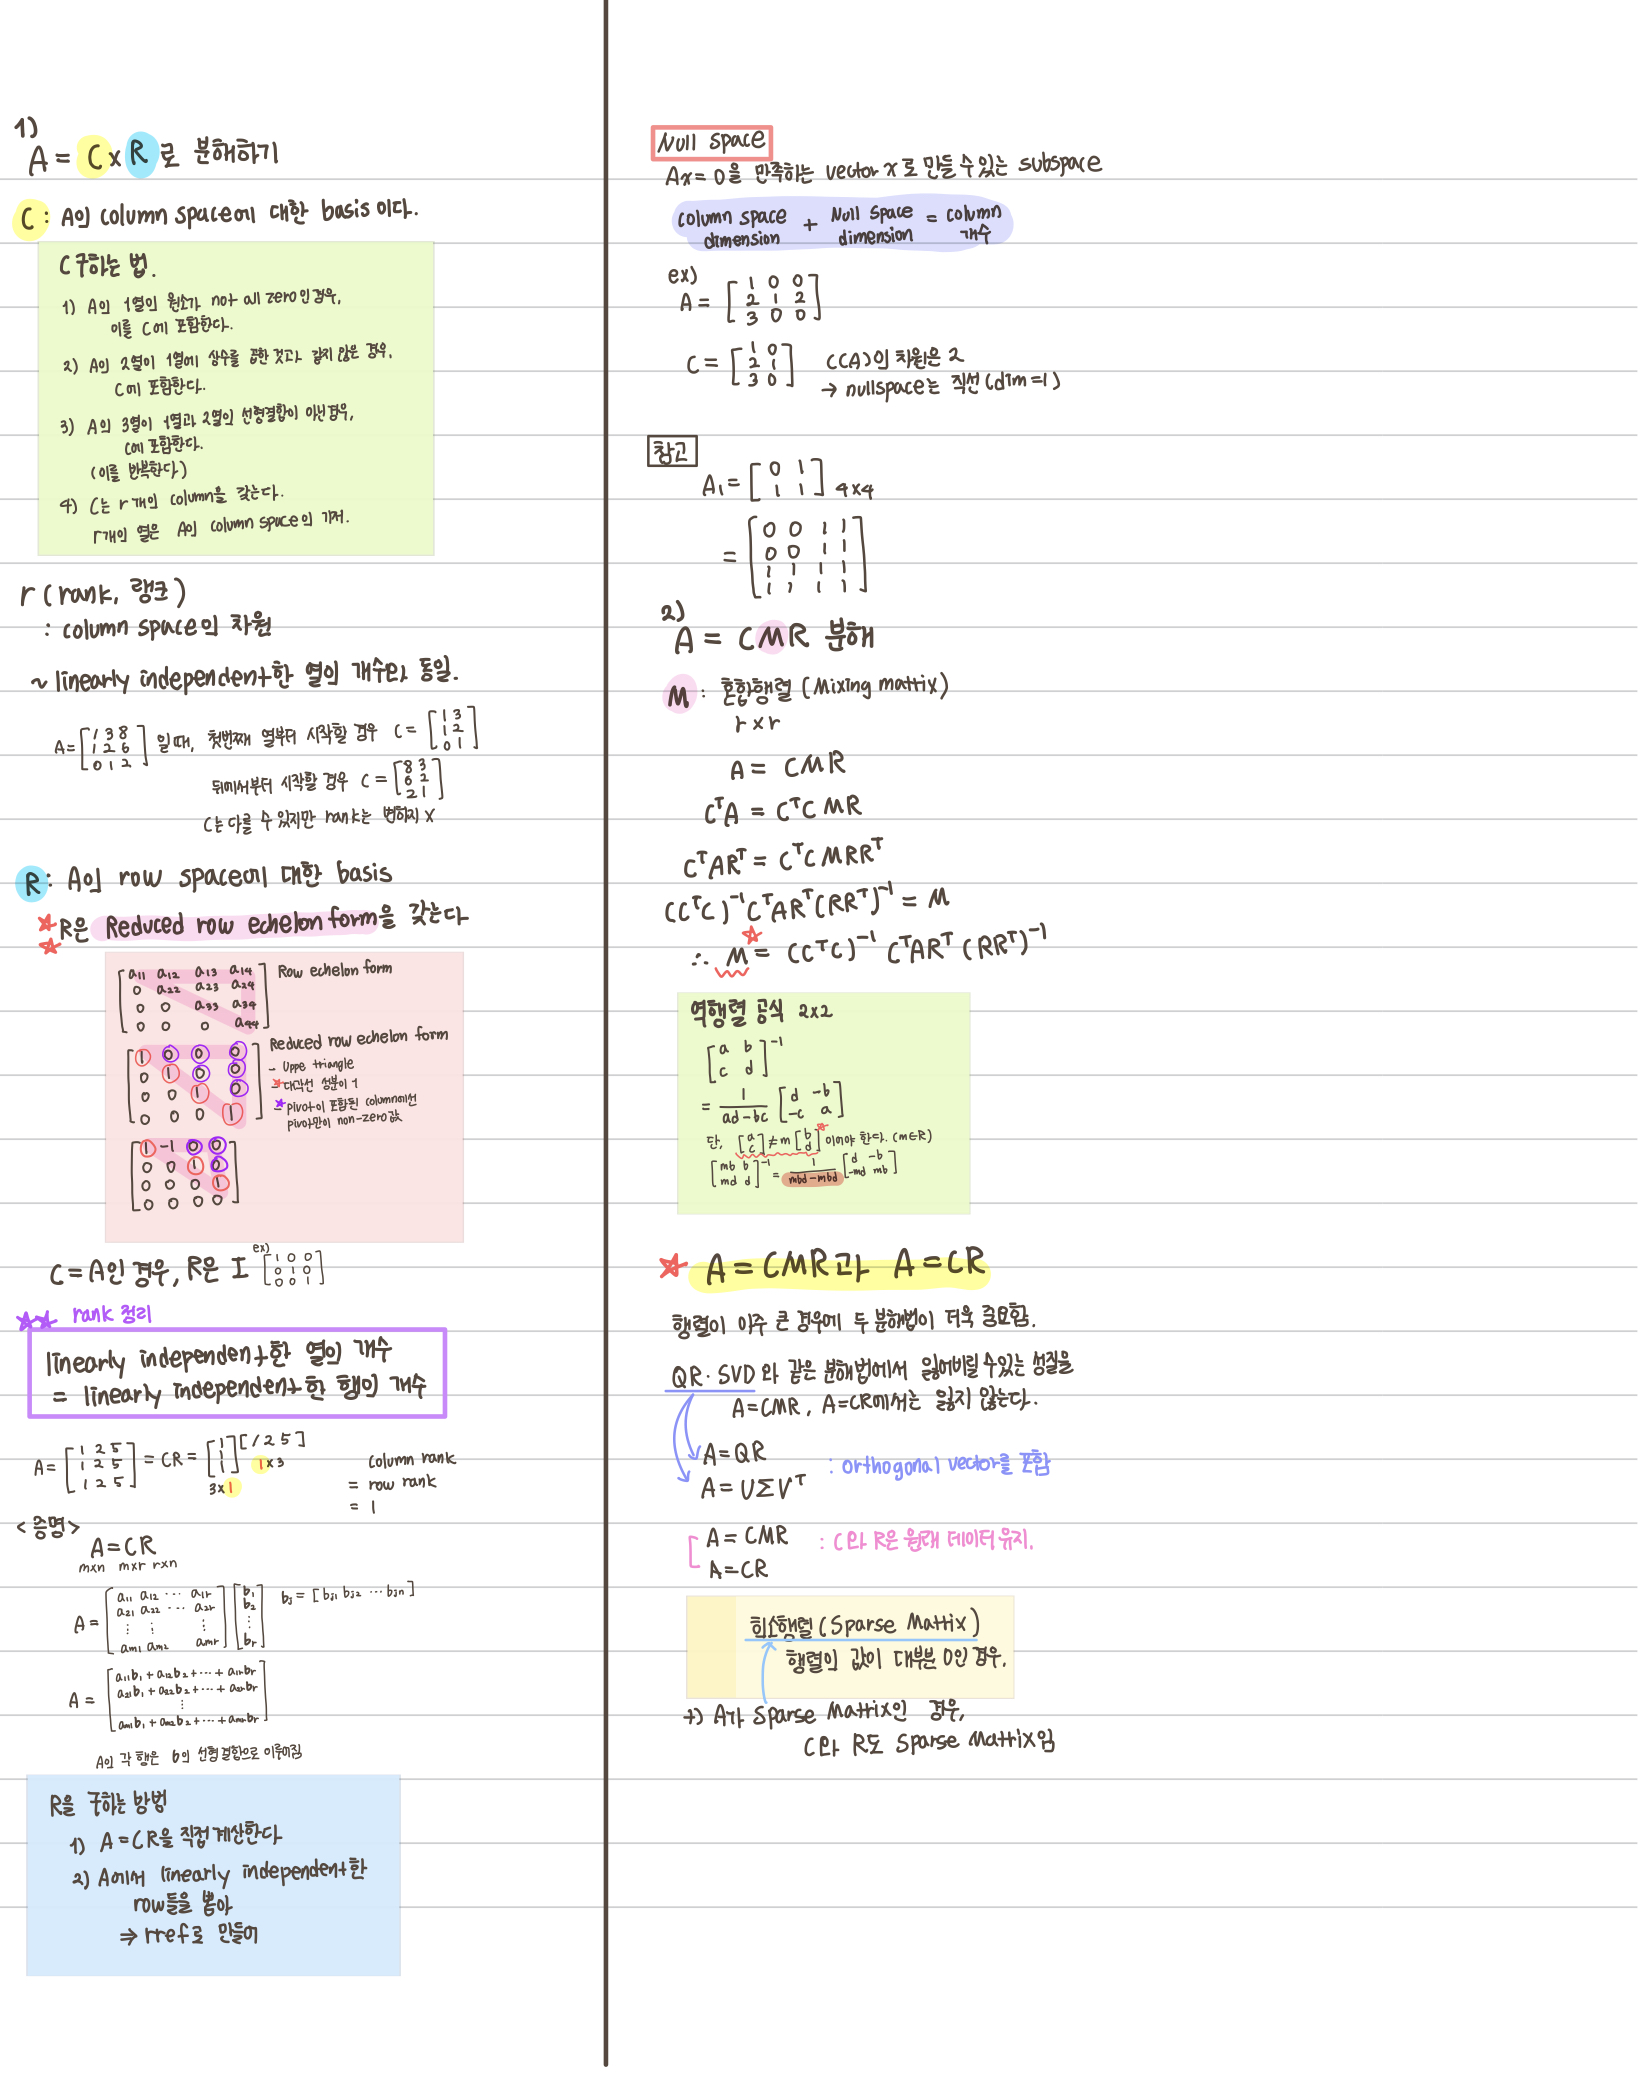 1)
A = C x R 로 분해하기
C : A의 column space에 대한 basis 이다.
C 구하는 법.
1) A의 1열의 원소가 not all zero인 경우,
이를 C에 포함한다.
2) A의 2열이 1열에 상수를 곱한 것과 같지 않은 경우,
C에 포함한다.
3) A의 3열이 1열과 2열의 선형결합이 아닌경우,
C에 포함한다.
(이를 반복한다)
4) C는 r개의 column을 갖는다.
r개의 열은 A의 column space의 기저.
r (rank, 랭크)
: column space의 차원
~ linearly independent한 열의 개수와 동일.
A = [1 3 8 / 1 2 6 / 0 1 2] 일 때, 첫번째 열부터 시작할 경우 C = [1 3 / 1 2 / 0 1]
뒤에서부터 시작할 경우 C = [8 3 / 6 2 / 2 1]
C는 다를 수 있지만 rank는 변하지 X
R : A의 row space에 대한 basis
R은 Reduced row echelon form을 갖는다
[a11 a12 a13 a14 / 0 a22 a23 a24 / 0 0 a33 a34 / 0 0 0 a44] Row echelon form
[1 0 0 0 / 0 1 0 0 / 0 0 1 0 / 0 0 0 1] Reduced row echelon form
- Uppe triangle
- 대각선 성분이 1
- pivot이 포함된 column에선
pivot만이 non-zero 값
[1 -1 0 0 / 0 0 1 0 / 0 0 0 1 / 0 0 0 0]
C = A인 경우, R은 I ex) [1 0 0 / 0 1 0 / 0 0 1]
rank 정리
linearly independent한 열의 개수
= linearly independent한 행의 개수
A = [1 2 5 / 1 2 5 / 1 2 5] = CR = [1 / 1 / 1] [1 2 5]
3x1 1x3
column rank
= row rank
= 1
<증명>
A = CR
mxn mxr rxn
A = [a11 a12 ... a1r / a21 a22 ... a2r / ⋮ ⋮ ⋮ / am1 am2 amr] [b1 / b2 / ⋮ / br] bj = [bj1 bj2 ... bjn]
A = [a11b1 + a12b2 + ... + a1rbr / a21b1 + a22b2 + ... + a2rbr / ⋮ / am1b1 + am2b2 + ... + amrbr]
A의 각 행은 b의 선형결합으로 이루어짐
R을 구하는 방법
1) A = CR을 직접 계산한다
2) A에서 linearly independent한
row들을 뽑아
⇒ rref로 만들어
Null space
Ax = 0을 만족하는 vector x로 만들 수 있는 subspace
column space dimension + Null space dimension = column 개수
ex)
A = [1 0 0 / 2 1 2 / 3 0 0]
C = [1 0 / 2 1 / 3 0] C(A)의 차원은 2
→ nullspace는 직선(dim=1)
참고
A1 = [0 1 / 1 1] 4x4
= [0 0 1 1 / 0 0 1 1 / 1 1 1 1 / 1 1 1 1]
2)
A = CMR 분해
M : 혼합행렬 (Mixing matrix)
r x r
A = CMR
CᵀA = CᵀCMR
CᵀARᵀ = CᵀCMRRᵀ
(CᵀC)⁻¹CᵀARᵀ(RRᵀ)⁻¹ = M
∴ M = (CᵀC)⁻¹ CᵀARᵀ (RRᵀ)⁻¹
역행렬 공식 2x2
[a b / c d]⁻¹
= 1/(ad-bc) [d -b / -c a]
단, [a / c] ≠ m [b / d] 이어야 한다. (m∈R)
[mb b / md d]⁻¹ = 1/(mbd-mbd) [d -b / -md mb]
A = CMR과 A = CR
행렬이 아주 큰 경우에 두 분해법이 더욱 중요함.
QR · SVD 와 같은 분해법에서 잃어버릴 수있는 성질을
A=CMR, A=CR에서는 잃지 않는다.
A = QR
A = UΣVᵀ
: orthogonal vector를 포함
A = CMR : C와 R은 원래 데이터 유지.
A = CR
희소행렬 (Sparse Matrix)
행렬의 값이 대부분 0인 경우.
+) A가 Sparse Matrix인 경우,
C와 R도 Sparse Matrix임